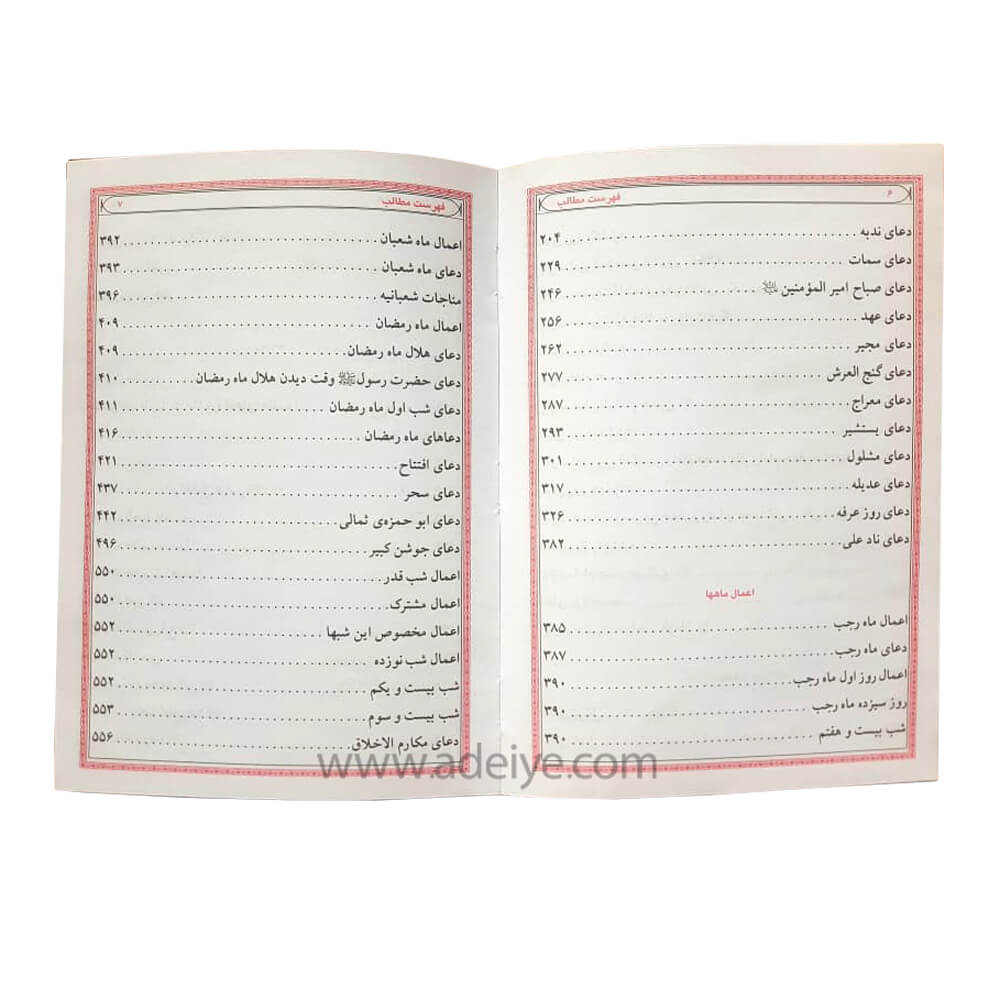 ۶ فهرست مطالب
دعای ندبه ۲۰۴
دعای سمات ۲۲۹
دعای صباح امیر المؤمنین ﷺ ۲۴۶
دعای عهد ۲۵۶
دعای مجیر ۲۶۲
دعای گنج العرش ۲۷۷
دعای معراج ۲۸۷
دعای یستشیر ۲۹۳
دعای مشلول ۳۰۱
دعای عدیله ۳۱۷
دعای روز عرفه ۳۲۶
دعای ناد علی ۳۸۲
اعمال ماهها
اعمال ماه رجب ۳۸۵
دعای ماه رجب ۳۸۷
اعمال روز اول ماه رجب ۳۹۰
روز سیزده ماه رجب ۳۹۰
شب بیست و هفتم ۳۹۰
فهرست مطالب ۷
اعمال ماه شعبان ۳۹۲
دعای ماه شعبان ۳۹۳
مناجات شعبانیه ۳۹۶
اعمال ماه رمضان ۴۰۹
دعای هلال ماه رمضان ۴۰۹
دعای حضرت رسول ﷺ وقت دیدن هلال ماه رمضان ۴۱۰
دعای شب اول ماه رمضان ۴۱۱
دعاهای ماه رمضان ۴۱۶
دعای افتتاح ۴۲۱
دعای سحر ۴۳۷
دعای ابو حمزه‌ی ثمالی ۴۴۲
دعای جوشن کبیر ۴۹۶
اعمال شب قدر ۵۵۰
اعمال مشترک ۵۵۰
اعمال مخصوص این شبها ۵۵۲
اعمال شب نوزده ۵۵۲
شب بیست و یکم ۵۵۲
شب بیست و سوم ۵۵۳
دعای مکارم الاخلاق ۵۵۶
www.adeiye.com